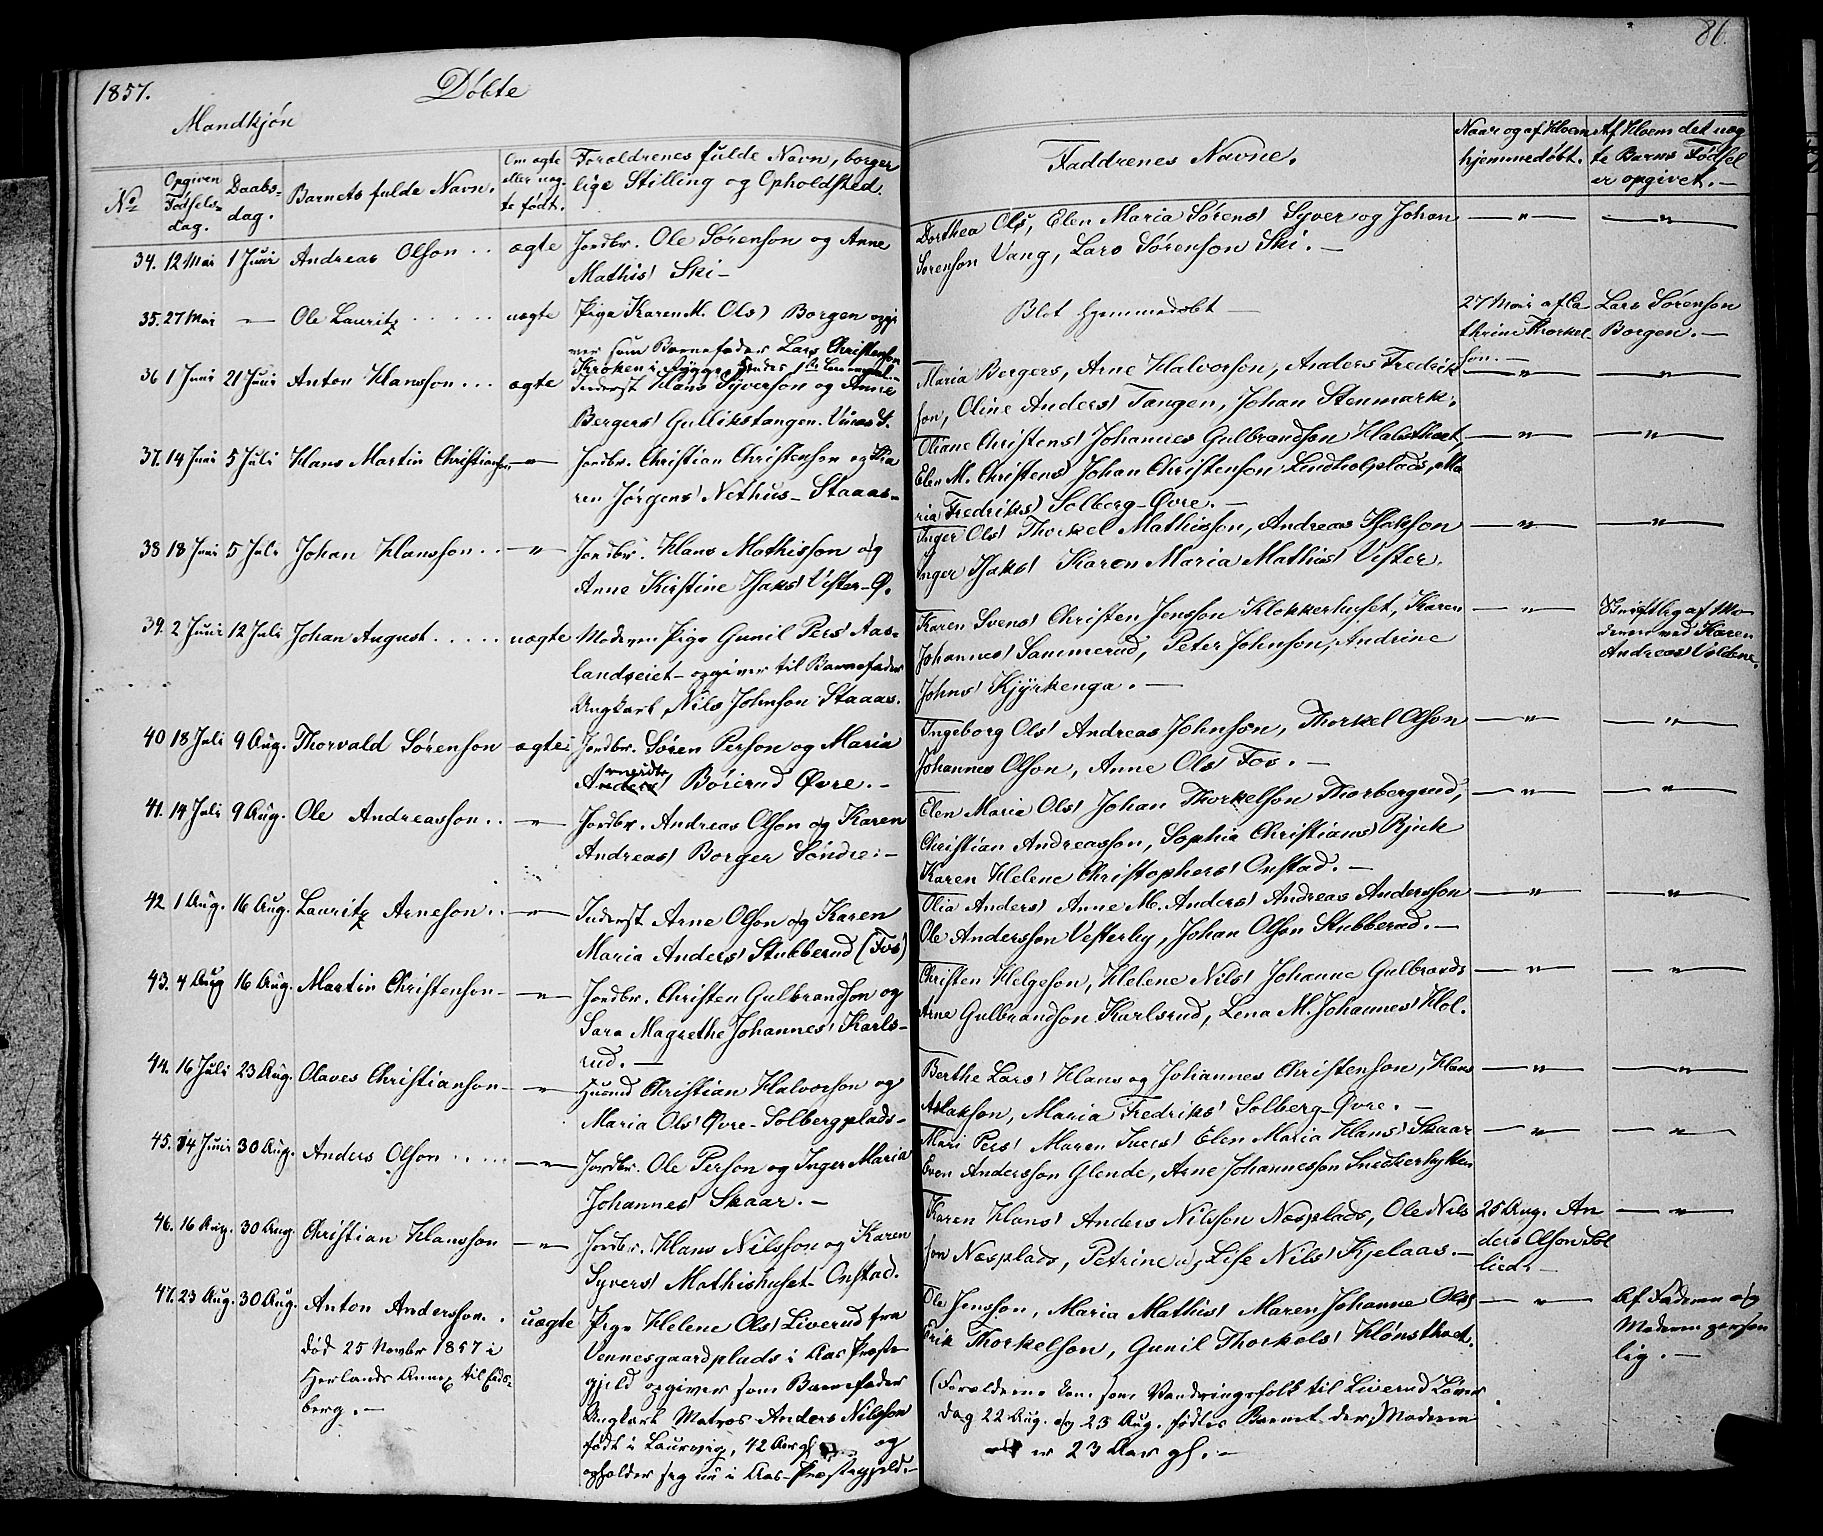 1857.
Döbte
86.
Mandkjön
No
Opgiven Födsels- dag.
Daabs- dag.
Barnets fulde Navn.
Om ægte eller uæg- te født.
Forældrenes fulde Navn, borger
lige Stilling og Opholdsted.
Faddrenes Navne.
Naar og af Hvem hjemmedöbt.
Af Hvem det uæg- te Barns Födsel er opgivet. -
34. 12 Mai 1 Juni Andreas Olson .. ægte Jordbr. Ole Sörenson og Anne
Mathis' Ski -
Dorthea Ols', Elen Maria Sörens' Syver og Johan
Sörenson Vang, Lars Sörenson Ski. -
35. 27 Mai — Ole Lauritz ..... uægte Pige Karen M. Ols' Borgen opgi
ver som Barnefader Lars Christenson
Kroken i Rygge, Hendes 1ste
Blot hjemmedöbt —
27 Mai af Ca
thrine Thorkel-
son. -
Lars Sörenson
Borgen. -
36 1 Juni 21 Juni Anton Hansson ... ægte Inderst Hans Syverson og Anne
Bergers' Gullikstangen.
Maria Bergers, Arne Halvorson, Anders Fredrik
son, Oline Anders' Tangen, Johan Stenmark.
37. 14 Juni 5 Juli Hans Martin Christianson —"— Jordbr. Christian Christenson og Ka
ren Jörgens' Nethus - Staaas-
Oliane Christens' Johannes Gulbrandson Halsthvet,
Elen M. Christens' Johan Christenson Lindholplads, Ma
ria Fredriks' Solberg-Övre. -
38 18 Juni 5 Juli Johan Hansson .. —"— Jordbr. Hans Mathisson og
Anne Kirstine Isaks' Vister-Ö.
Inger Ols' Thorkel Mathisson, Andreas Isakson
Inger Isaks' Karen Maria Mathis' Vister.
39. 2 Juni 12 Juli Johan August ..... uægte Moderen Pige Gunil Pers' Aas-
landseiet - opgiver til Barnefader
Ungkarl Nils Johnson Staaas.
Karen Svens' Christen Jensson Klokkerhuset, Karen
Johannes' Sammerud, Peter Johnson, Andrine
Johns' Kjyrkenga. -
Skriftlig af Mo
deren ved Karen
Andreas' Voldene.
40 18 Juli 9 Aug. Thorvald Sörenson ægte Jordbr. Sören Person og Maria
Anders' Böierud Övre. -
Ingeborg Ols' Andreas Johnson, Thorkel Olson
Johannes Olson, Anne Ols' Fos. -
41. 14 Juli 9 Aug. Ole Andreasson .. —"— Jordbr. Andreas Olson og Karen
Andreas' Borger Söndre. -
Elen Maria Ols' Johan Thorkelson Thorbergrud,
Christian Andreasson, Sophia Christians' Rjuk
Karen Helene Christophers' Onstad. -
42 1 Aug. 16 Aug. Lauritz Arneson .. —"— Inderst Arne Olson og Karen
Maria Anders' Stubberud (Fos)
Olia Anders' Anne M. Anders' Andreas Andersson
Ole Andersson Vesterby, Johan Olson Stubberud. -
43. 4 Aug 16 Aug. Martin Christenson - —"— Jordbr. Christen Gulbrandson og
Sara Magrethe Johannes' Karls-
rud. -
Christen Helgeson, Helene Nils' Johanne Gulbrands
Arne Gulbrandson Karlsrud, Lena M. Johannes' Hol.
44. 16 Juli 23 Aug. Olaves Christianson - —"— Husmd Christian Halvorson og
Maria Ols' Övre-Solbergplads-
Berthe Lars' Hans og Johannes Christenson, Hans
Aslakson, Maria Fredriks' Solberg-Övre. -
45. 14 Juni 30 Aug. Anders Olson ..... —"— Jordbr. Ole Person og Inger Maria
Johannes' Skaar. -
Mari Pers' Maren Ivers' Elen Maria Hans' Skaar
Even Andersson Glende, Arne Johannesson Snedkerhytten
46. 16 Aug. 30 Aug Christian Hansson —"— Jordbr. Hans Nilsson og Karen
Syvers' Mathishuset - Onstad.
Karen Hans' Anders Nilsson Næsplads, Ole Nils
son Næsplads, Petrine og Lise Nils' Kjelaas. -
25 Aug. An
ders Olson Sol
lied. -
47. 23 Aug. 30 Aug. Anton Andersson. . uægte Pige Helene Ols' Liverud fra
död 25 Novbr 1857 i
Herlands Annex til Eids-
berg. -
Vennesgaardplads i Aas Præste
gjeld opgiver som Barnefader
Ungkarl Matros Anders Nilsson
født i Laurvig, 42 Aar gl. og
opholder sig nu i Aas-Præstegjeld. -
Ole Jensson, Maria Mathis' Maren Johanne Ols'
Erik Thorkelson, Gunil Thorkels' Klönsthvet.
(Forældrene kom som Vandringsfolk til Liverud Löver
dag 22 Aug. og 23 Aug. födtes Barnet der,) Moderen
er 23 Aar gl. -
Af Faderen og
Moderen person
lig. -